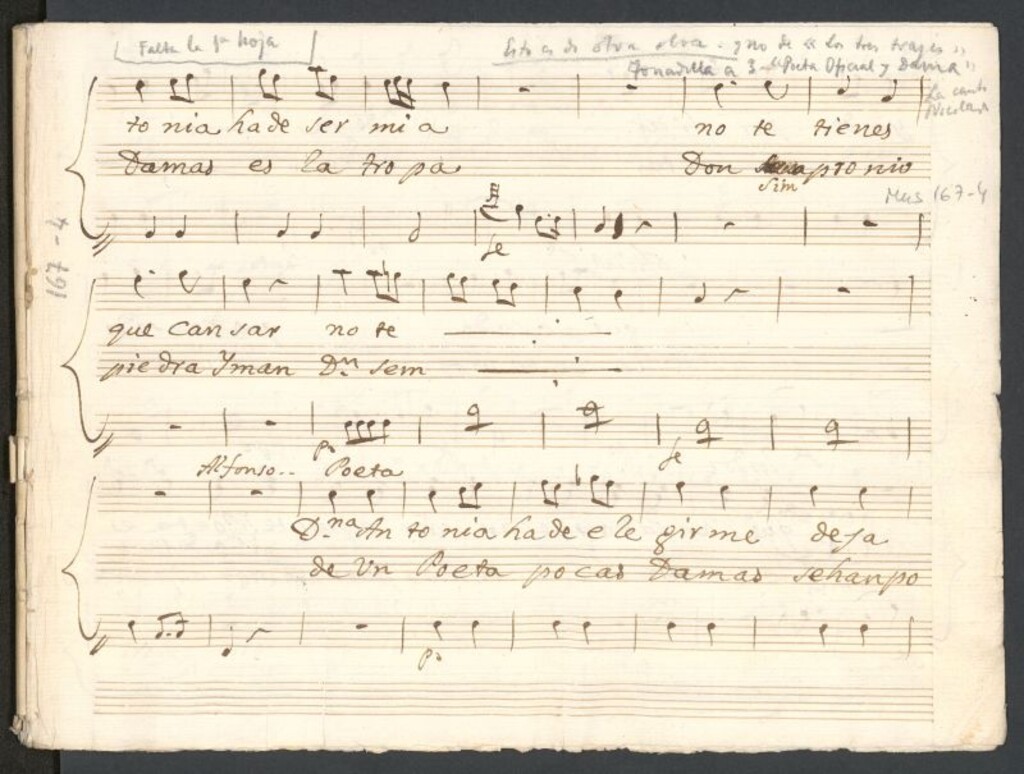 Falta la 1ª hoja
Esto es de otra obra. y no de "Los tres trajes"
Tonadilla a 3 "Poeta Oficial y Dama"
La canta
Nicolasa
to nia ha de ser mi a no te tienes
Damas es la tropa Don aptonio
Sim
Mus 167-4
fe
167-4
que cansar no te
piedra Yman Dn. sem
Po
fe
Alfonso.. Poeta
D.na An to nia ha de ele girme desa
de Un Poeta pocas Damas sehanpo
Po